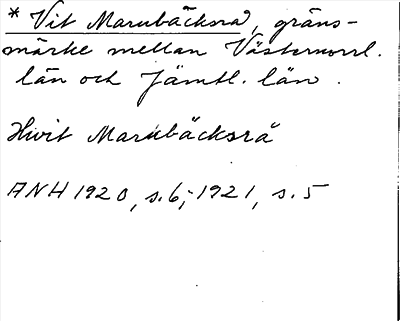 * Vit Marubäcksrå, gräns-
märke mellan Västernorrl.
län och Jämtl. län.
Hvit Marubäcksrå
ANH 1920, s. 6; 1921, s. 5